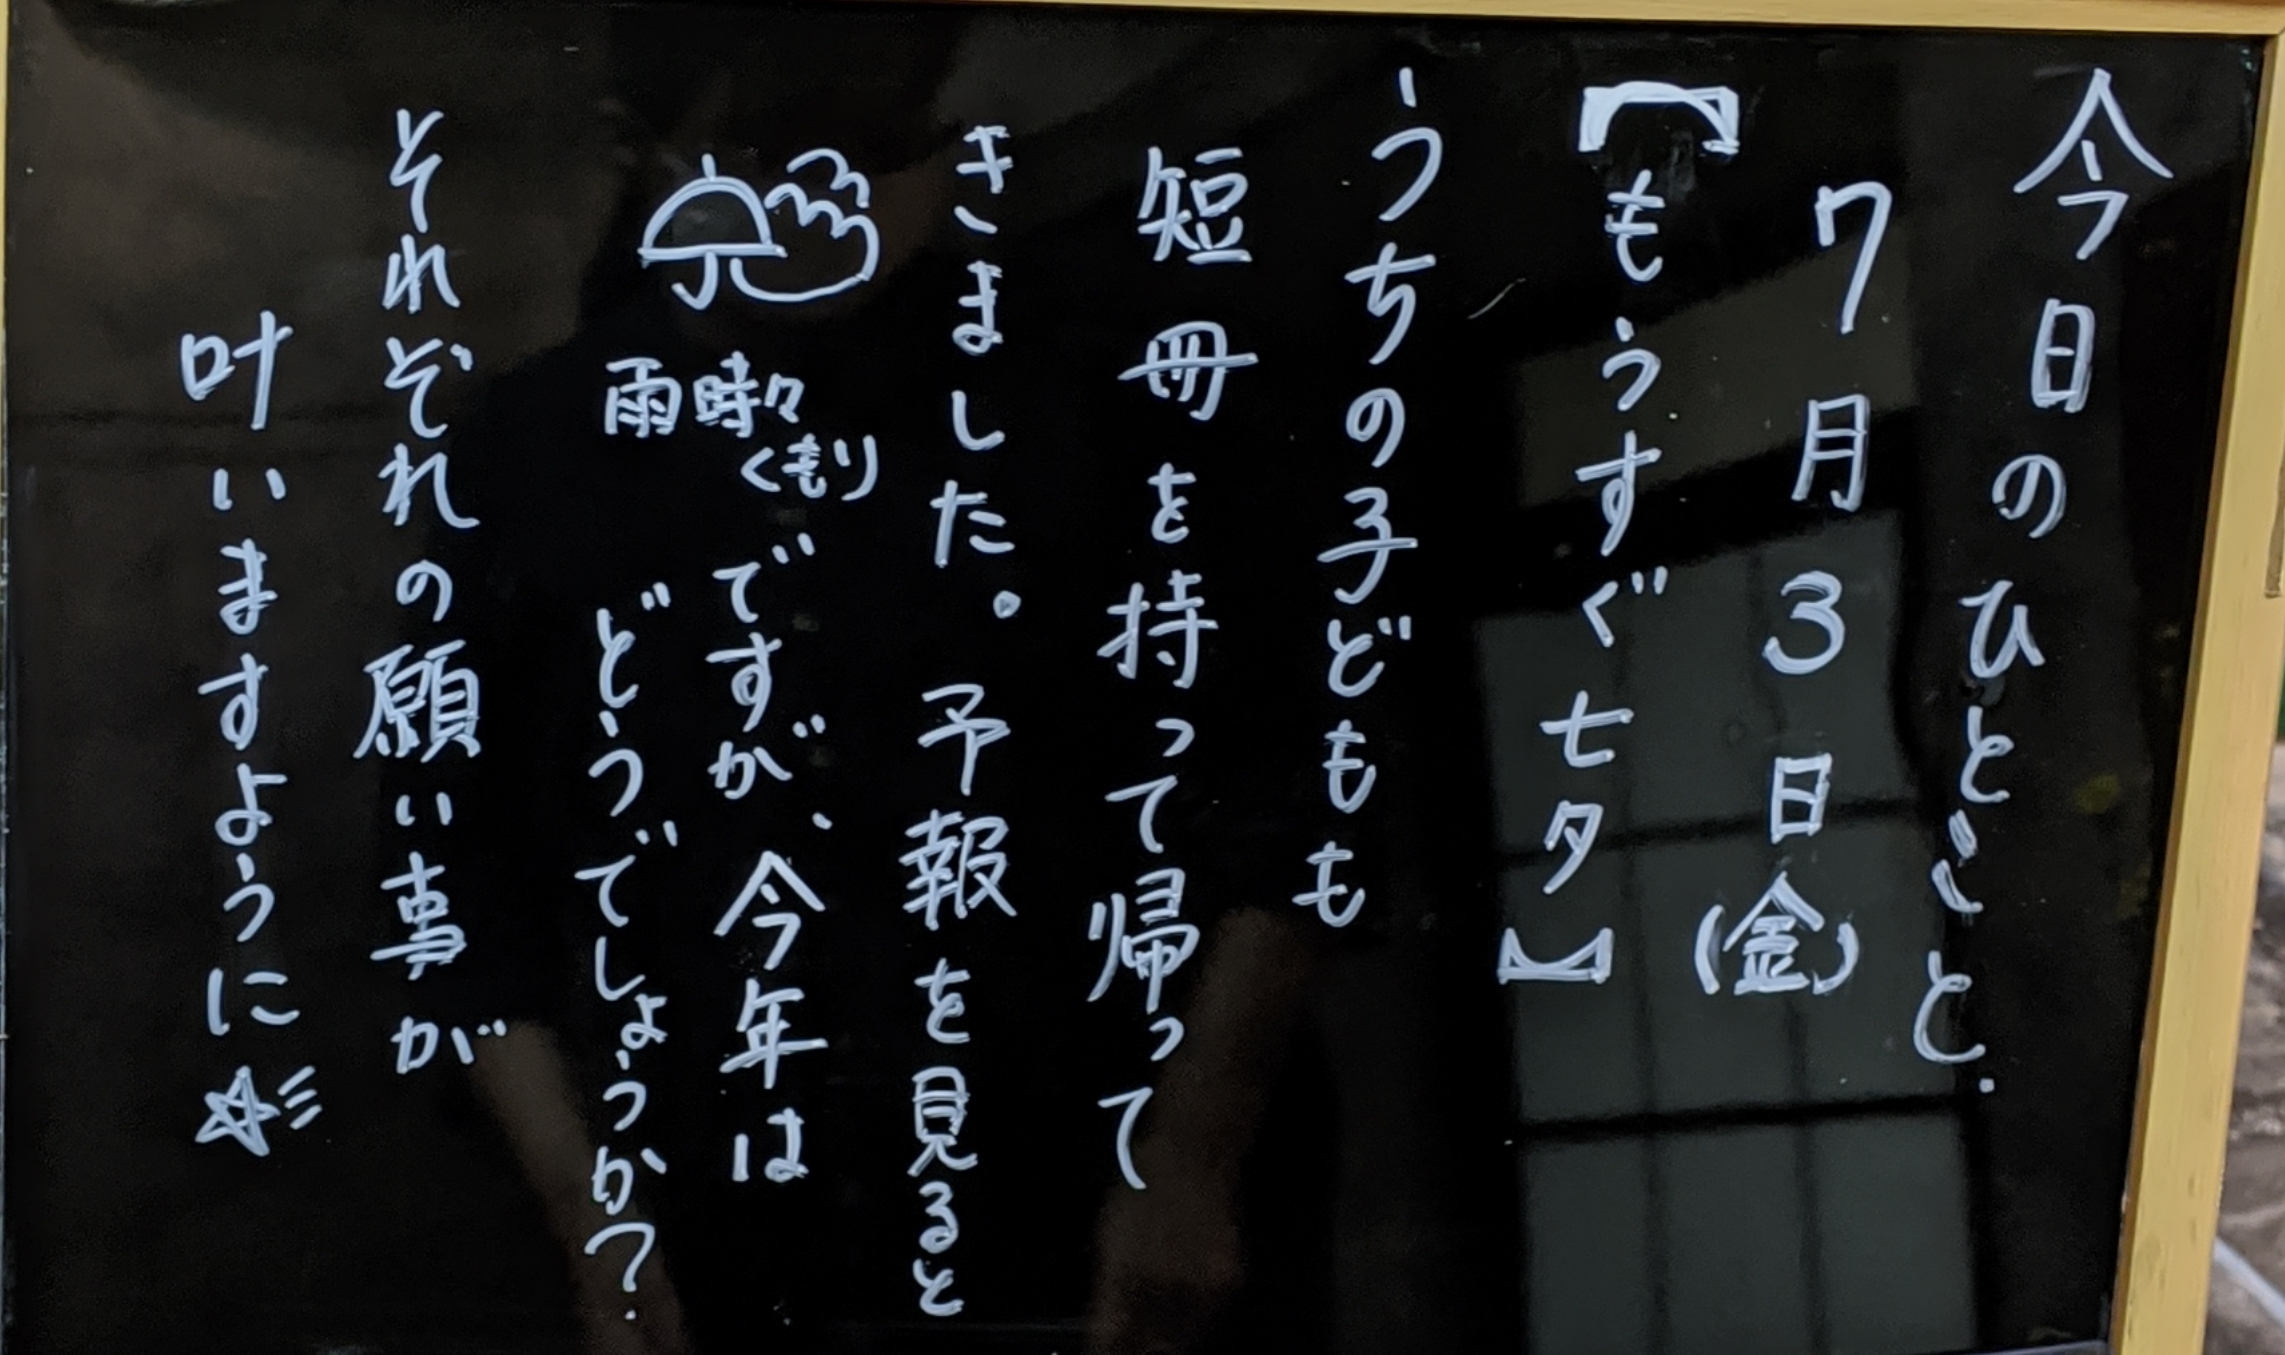 今日のひとこと.
7月3日(金)
【もうすぐ七夕】
うちの子どもも
短冊を持って帰って
きました。予報を見ると
雨時々くもりですが、今年は
どうでしょうか?
それぞれの願い事が
叶いますように☆